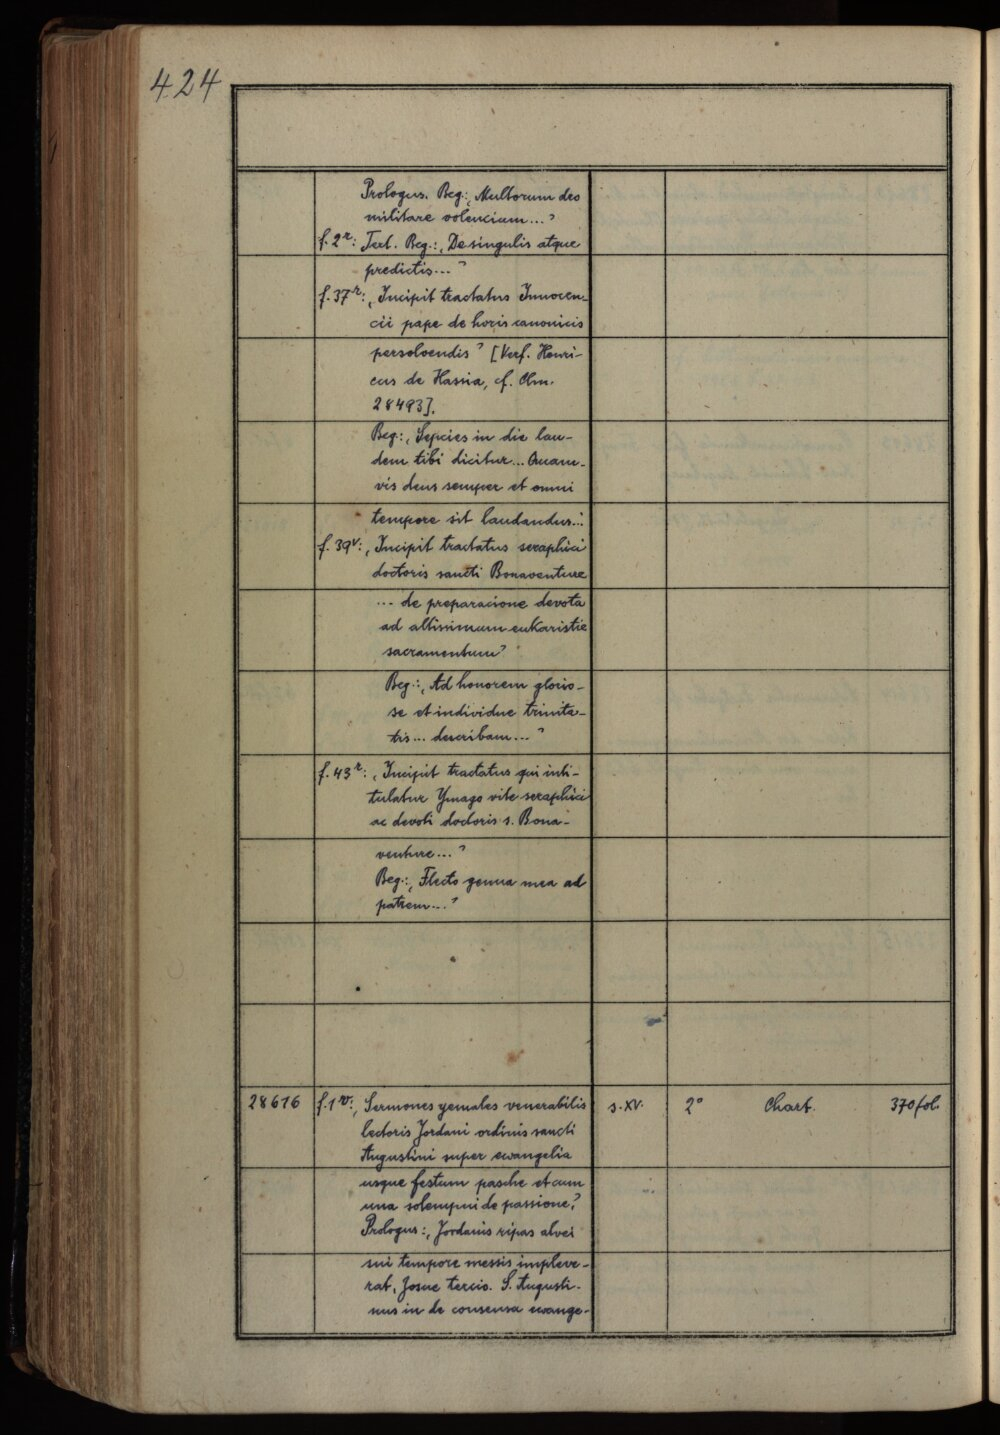 424
Prologus. Beg.: „Multorum deo
militare volencium...“
f. 2r: Text. Beg.: „De singulis atque
predictis...“
f. 37r: „Incipit tractatus Innocen-
cii pape de horis canonicis
persolvendis“ [Verf. Henri-
cus de Hassia, cf. Clm.
28493].
Beg.: „Sepcies in die lau-
dem tibi dicitur... Quam-
vis deus semper et omni
tempore sit laudandus...“
f. 39v: „Incipit tractatus seraphici
doctoris sancti Bonaventure
... de preparacione devota
ad altissimum eukaristie
sacramentum“
Beg.: „Ad honorem glorio-
se et individue trinita-
tis... describam...“
f. 43r: „Incipit tractatus qui inti-
tulatur Ymago vite seraphici
ac devoti doctoris s. Bona-
venture...“
Beg.: „Flecto genua mea ad
patrem...“
28616 f. 1v: „Sermones yemales venerabilis s. XV. 2° Chart. 370 fol.
lectoris Jordani ordinis sancti
Augustini super ewangelia
usque festum pasche et cum
una solempni de passione“
Prologus: „Jordanis ripas alvei
sui tempore messis impleve-
rat, Josue tercio. S. Augusti-
nus in de consensu ewange-